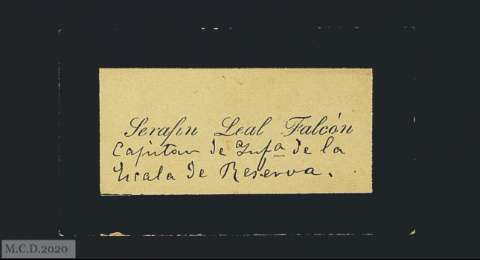 Serafin Leal Falcón
Capitan de Infª de la
Escala de Reserva.
M.C.D.2020